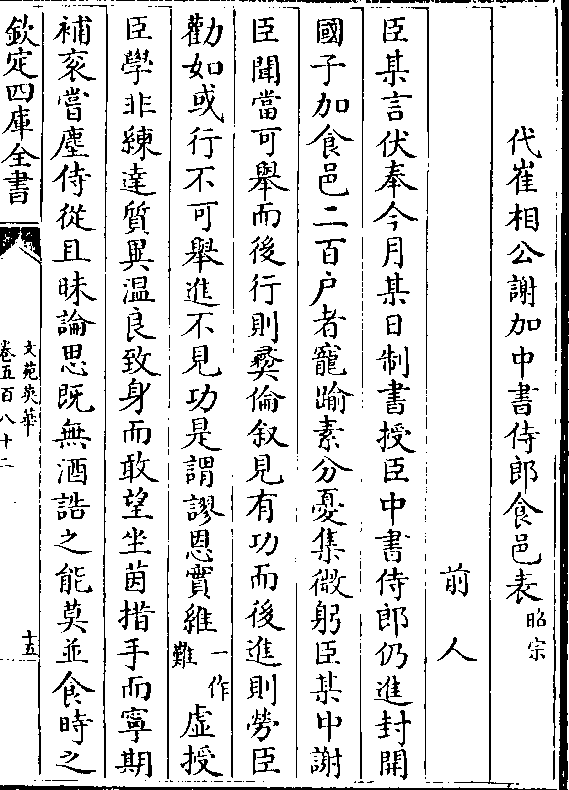 代崔相公謝加中書侍郎食邑表昭宗
前人
臣某言伏奉今月某日制書授臣中書侍郎仍進封開
國子加食邑二百户者寵踰素分憂集微躬臣某中謝
臣聞當可舉而後行則彞倫叙見有功而後進則勞臣
勸如或行不可舉進不見功是謂謬恩實維一作難虛授
臣學非練達質異温良致身而敢望坐茵措手而寧期
補衮嘗塵侍從且昧論思既無酒誥之能莫並食時之
欽定四庫全書
文苑英華
卷五百八十二
十五